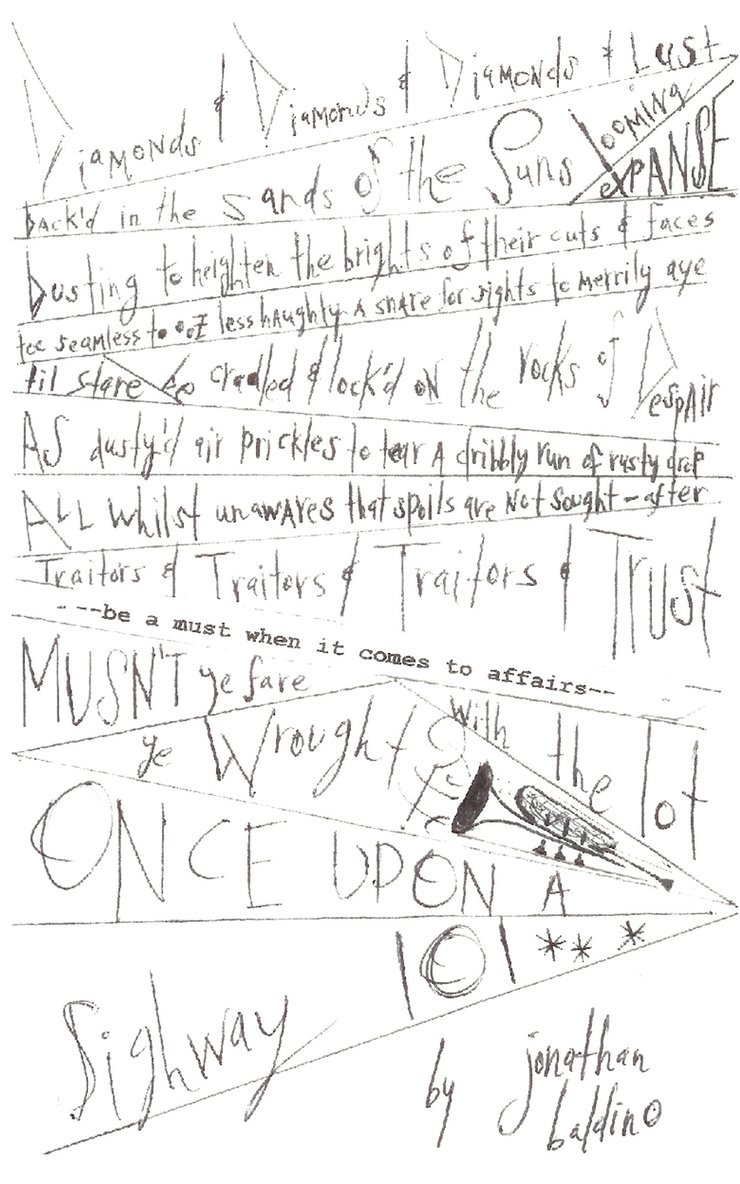 Diamonds & Diamonds & Diamonds & Lust
back'd in the sands of the Suns looming exPANSE
Dusting to heighten the brights of their cuts & faces
too seamless to ooz less haughty A snare for sights to merrily aye
til stare be cradled & lock'd oN the rocks of Despair
AS dusty'd air prickles to tear A dribbly run of rusty drop
ALL whilst unawares that spoils are Not sought-after
Traitors & Traitors & Traitors & TrUSt
----be a must when it comes to affairs--
MUSN'T ye fare
ye Wrought With the lot
ONCE UPON A
101***
Sighway
by jonathan
baldino